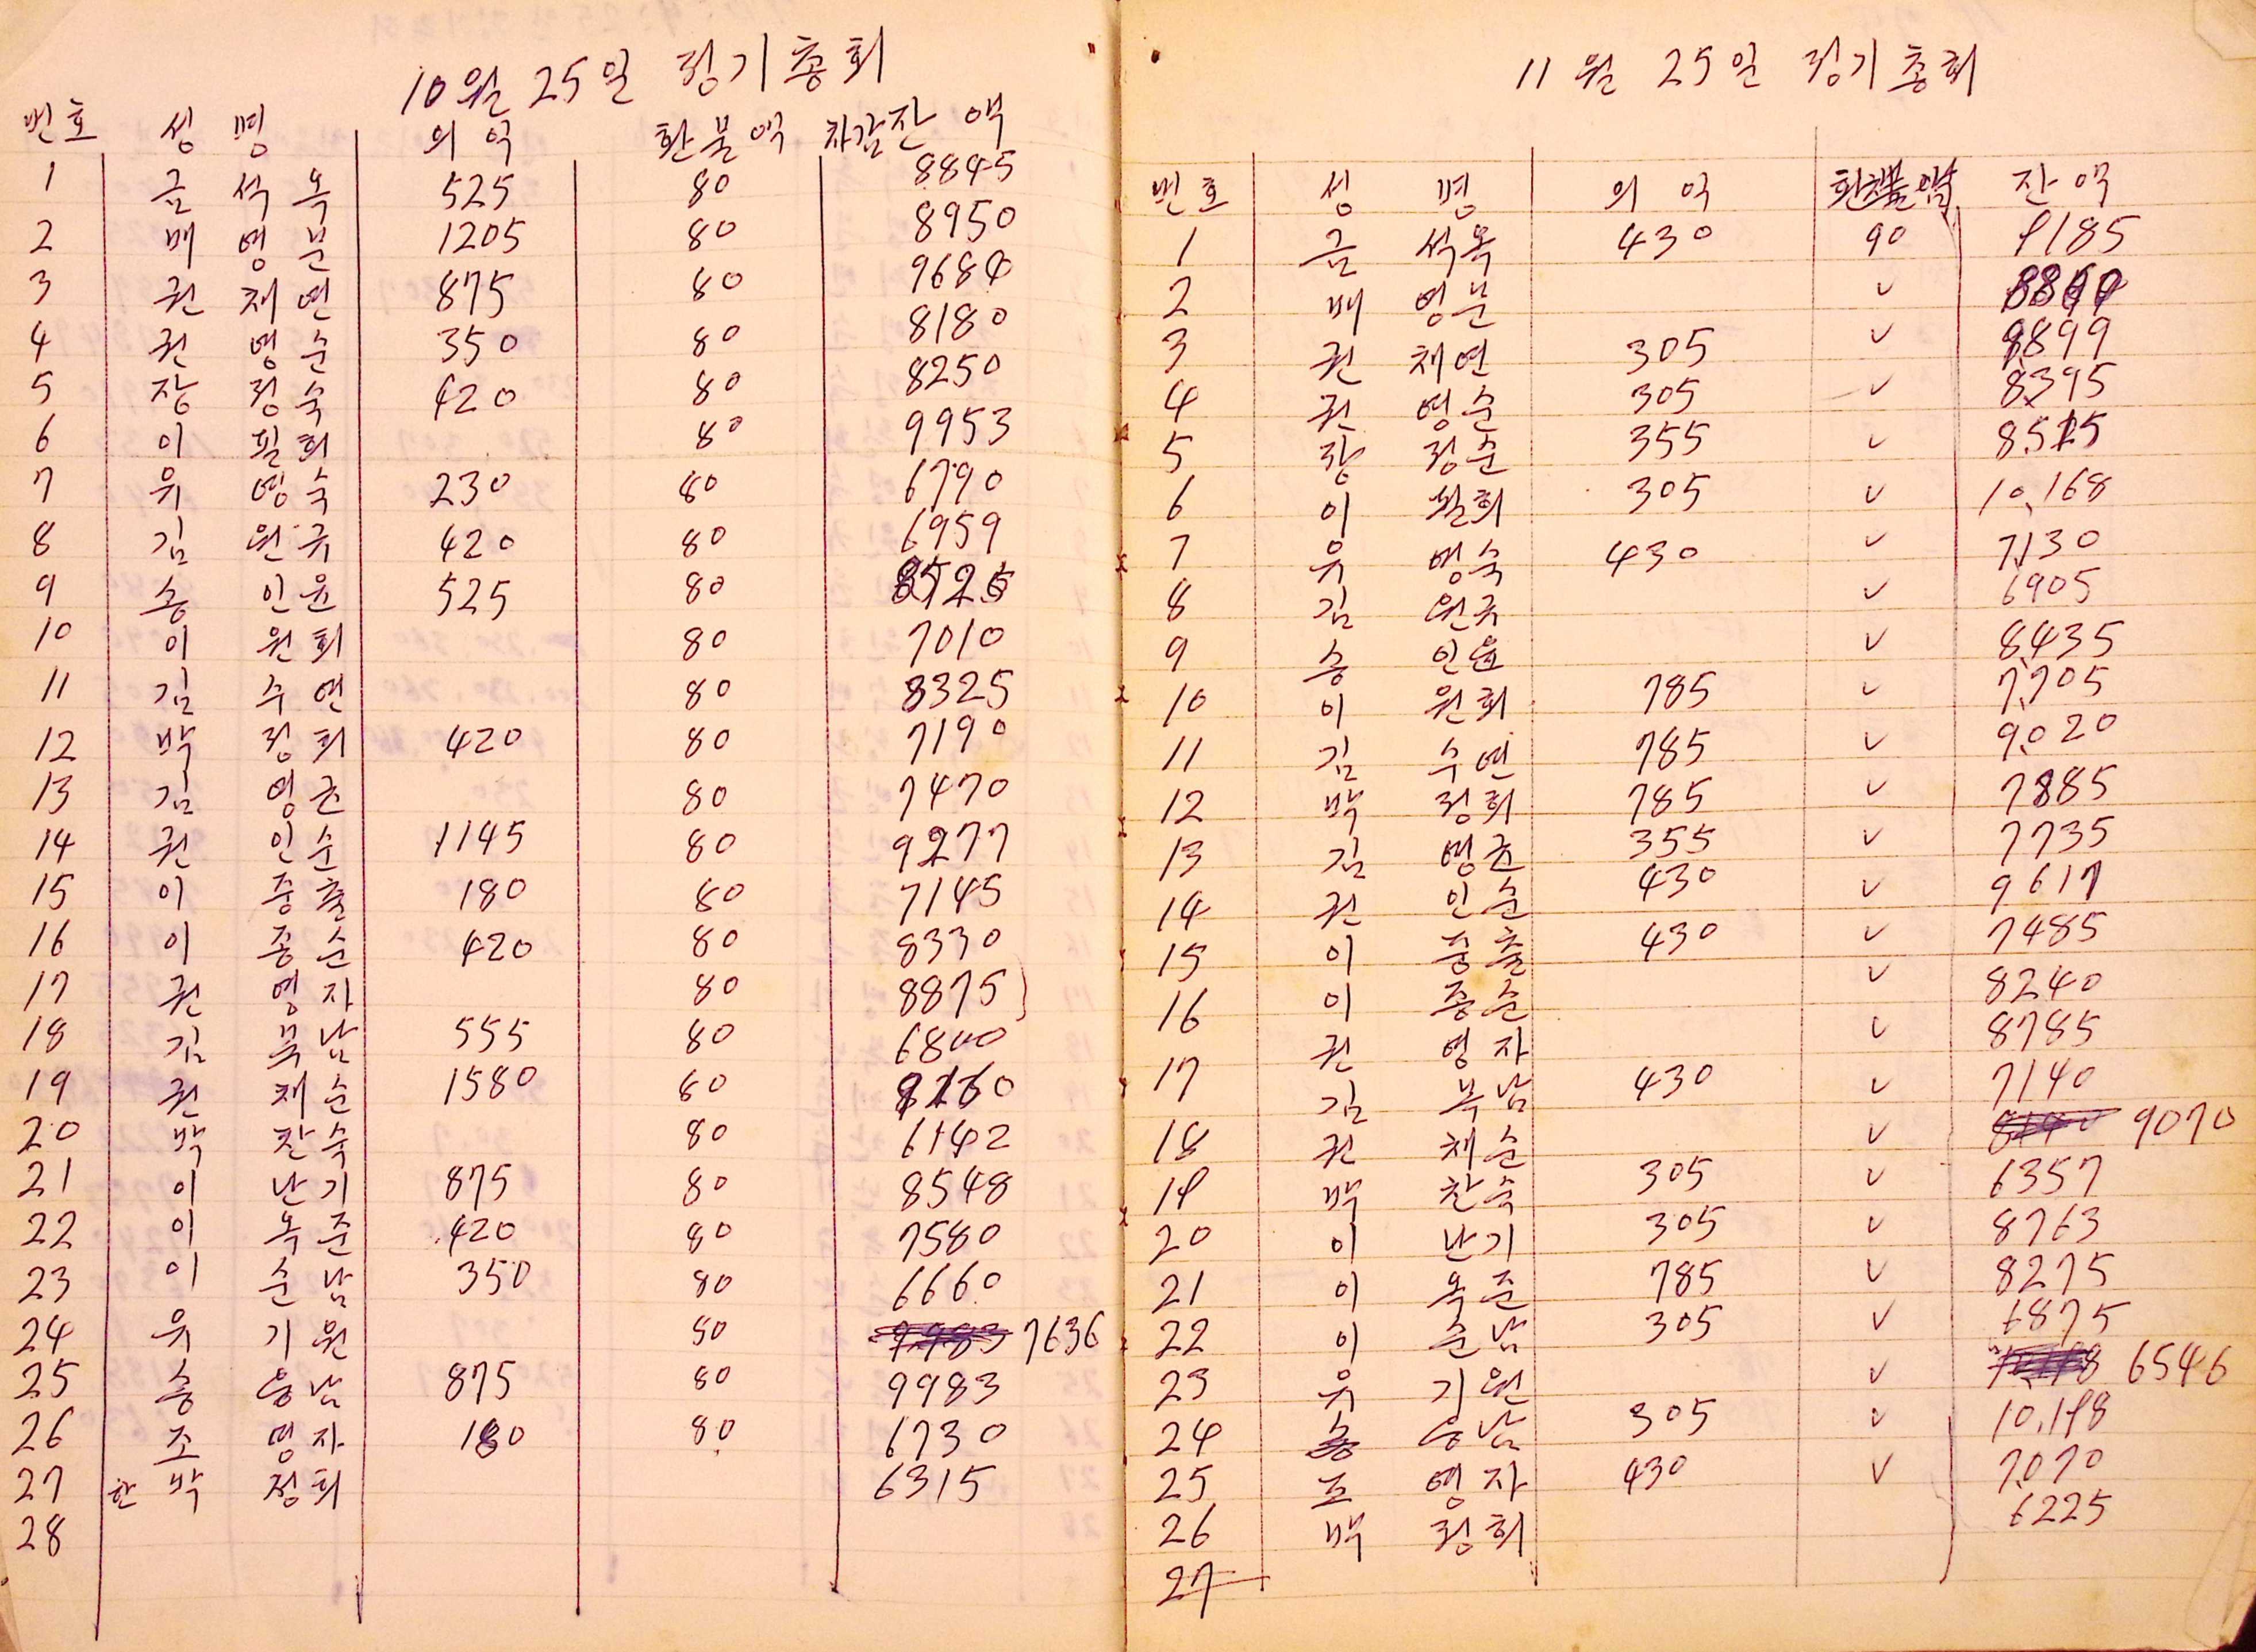 10월 25일 정기총회
번호 성명 의억 환불액 차감잔액
1 금석옥 525 80 8845
2 배영분 1205 80 8950
3 권채연 875 80 9684
4 권영순 350 80 8180
5 장정숙 420 80 8250
6 이필희 80 9953
7 유영숙 230 80 6790
8 김원규 420 80 6959
9 송인윤 525 80
10 이원회 80 7010
11 김수연 80 8325
12 박정희 420 80 7190
13 김영균 80 7470
14 권인순 1145 80 9277
15 이중출 180 80 7145
16 이종순 420 80 8330
17 권영자 80 8875
18 김복남 555 80 6800
19 권채순 1580 80
20 박찬숙 80 6142
21 이난기 875 80 8548
22 이옥준 420 80 7580
23 이순남 350 80 6660
24 유기원 50 7636
25 송응남 875 80 9983
26 조영자 180 80 6730
27 한 박정희 6315
28
11월 25일 정기총회
번호 성명 의억 잔액
1 금석옥 430 90 9185
2 배영분 ✓
3 권채연 305 ✓ 9899
4 권영순 305 ✓ 8395
5 장정순 355 ✓ 8525
6 이필희 305 ✓ 10,168
7 유영숙 430 ✓ 7130
8 김원규 ✓ 6905
9 송인윤 ✓ 8435
10 이원희 785 ✓ 7705
11 김수연 785 ✓ 9020
12 박정희 785 ✓ 7885
13 김영균 355 ✓ 7735
14 권인순 430 ✓ 9617
15 이중출 430 ✓ 7485
16 이종순 ✓ 8240
권영자 ✓ 8785
17 김복남 430 ✓ 7140
18 권채순 ✓ 9070
19 박찬숙 305 ✓ 6357
20 이난기 305 ✓ 8763
21 이옥준 785 ✓ 8275
22 이순남 305 ✓ 6875
23 유기원 ✓ 6546
24 송응남 305 ✓ 10,198
25 조영자 430 ✓ 7070
26 박정희 6225
27